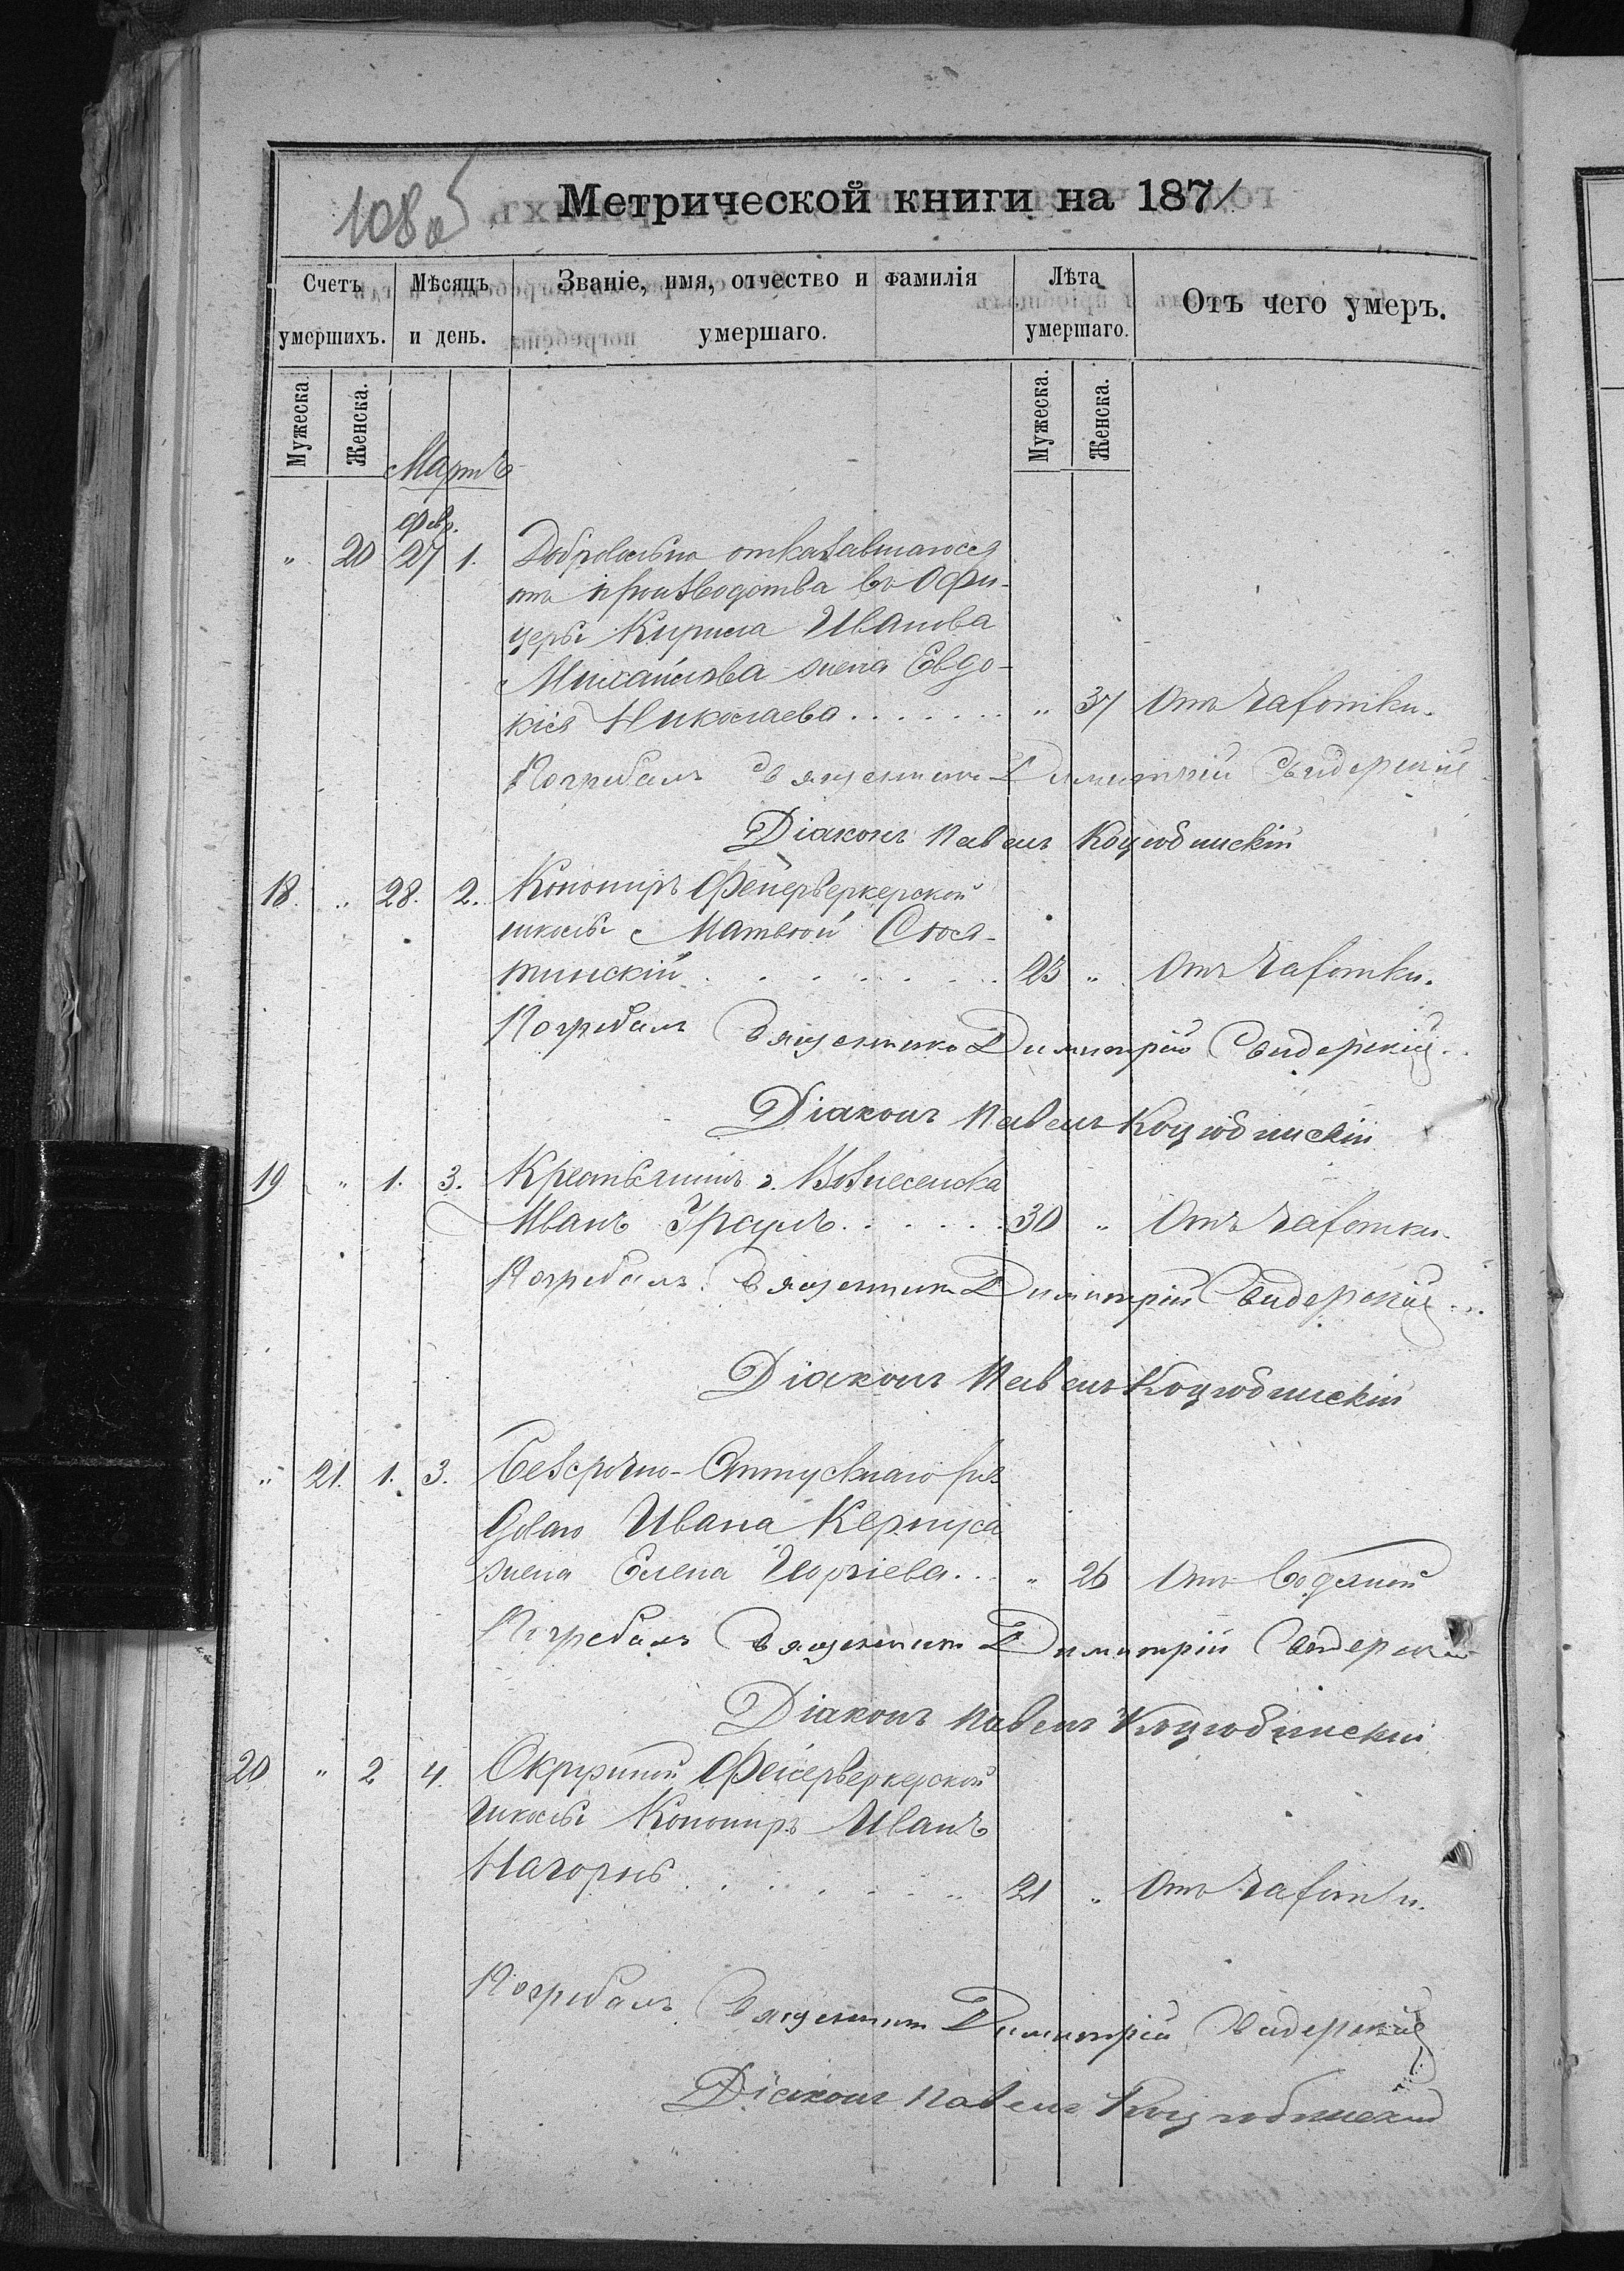 108 об
Метрической книги на 1871
Счетъ умершихъ.
Мѣсяцъ и день.
Званіе, имя, отчество и фамилія умершаго.
Лѣта умершаго.
Отъ чего умеръ.
Мужеска.
Женска.
Мужеска.
Женска.
Мартъ
Февр.
" 20 27 1. Добровольно отказавшагося
отъ производства въ Офи-
церы Кирила Иванова
Михайлова жена Евдо-
кія Николаева........ " 37 Отъ чахотки.
Погребалъ Священникъ Димитрій Свидерскій
Діаконъ Павелъ Коцюбинскій
18. " 28. 2. Конониръ Фейерверкерской
школы Матвѣй Слося-
тинскій........ 23 " Отъ чахотки.
Погребалъ Священникъ Димитрій Свидерскій
Діаконъ Павелъ Коцюбинскій
19 " 1. 3. Крестьянинъ г. Вознесенска
Иванъ Грауль....... 30 " Отъ чахотки.
Погребалъ Священникъ Димитрій Свидерскій...
Діаконъ Павелъ Коцюбинскій
" 21. 1. 3. Безсрочно-Отпускнаго ря-
доваго Ивана Кернуса
жена Елена Георгіева... " 26 Отъ Водяной
Погребалъ Священникъ Димитрій Свидерскій
Діаконъ Павелъ Коцюбинскій
20 " 2 4. Окружной Фейерверкерской
Школы Конониръ Иванъ
Нагорнѣ....... 21 " Отъ чахотки.
Погребалъ Священникъ Димитрій Свидерскій
Діаконъ Павелъ Коцюбинскій